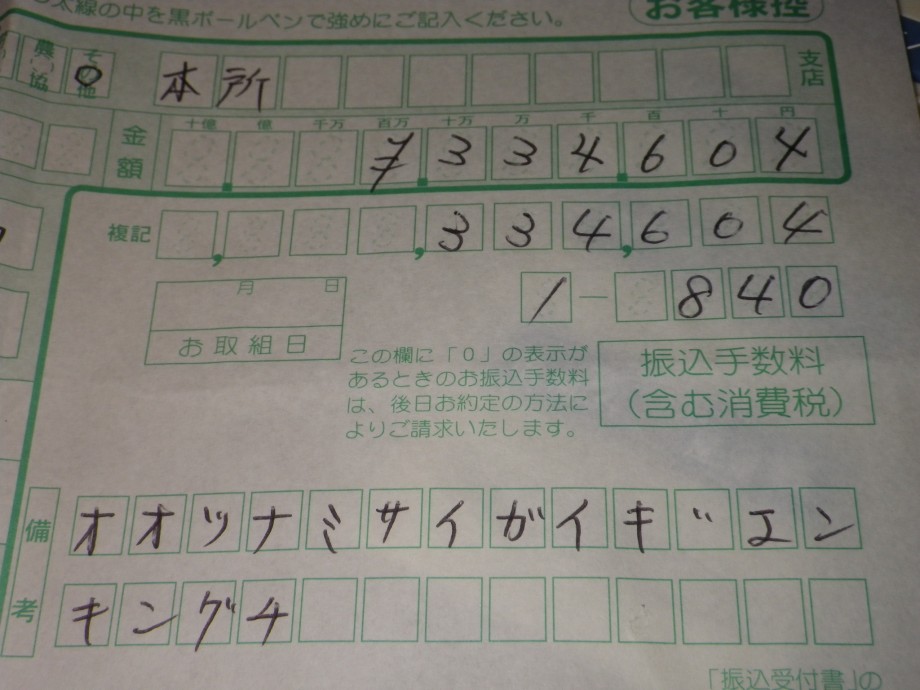 太線の中を黒ボールペンで強めにご記入ください。 お客様控
農協 その他 本所 支店
金額 十億 億 千万 百万 十万 万 千 百 十 円
¥334604
複記 , ,334,604
1-840
月 日
お取組日
この欄に「0」の表示が
あるときのお振込手数料
は、後日お約定の方法に
よりご請求いたします。
振込手数料
(含む消費税)
備考
オオツナミサイガイギエン
キングチ
「振込受付書」の